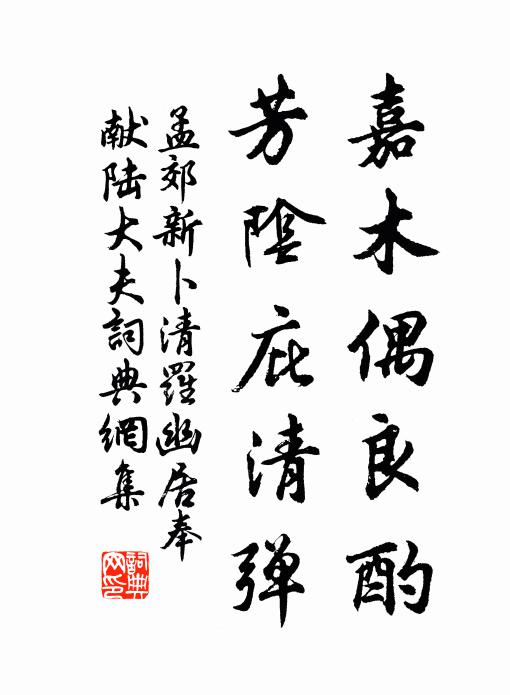 嘉木偶良酌
芳陰庇清弹
孟郊新卜清羅幽居奉
献陆大夫詞典網集
詞典网印